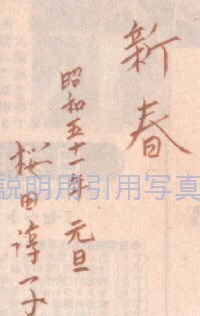 新春
昭和五十一年 元旦
桜田淳子
説明用引用写真